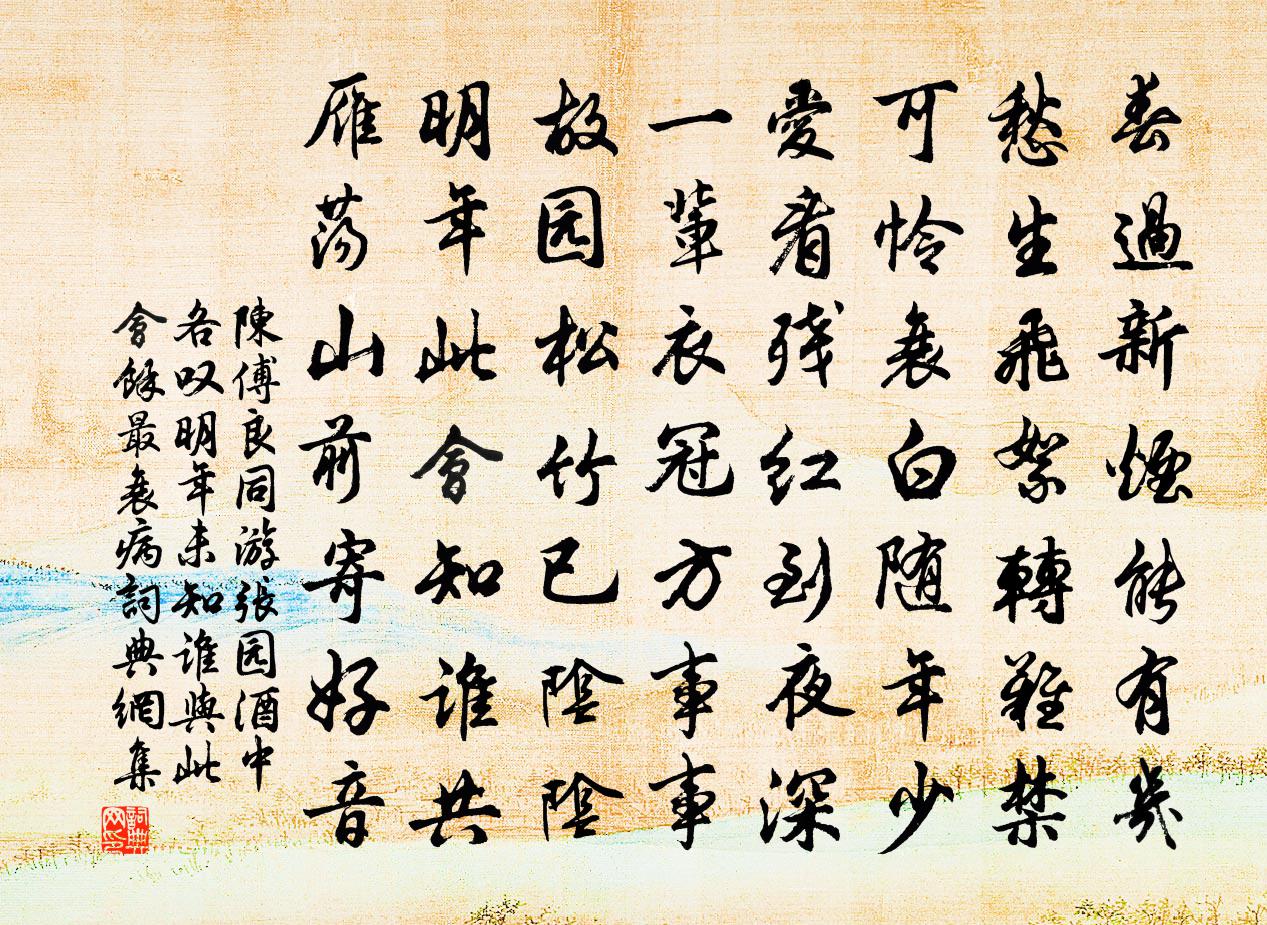 春過新煙能有幾
愁生飛絮轉難禁
可怜衰白随年少
愛看残红到夜深
一輩衣冠方事事
故园松竹已陰陰
明年此會知誰共
雁荡山前寄好音
陳傅良同游张园酒中
各叹明年未知誰與此
會餘最衰病詞典網集
詞典
网印